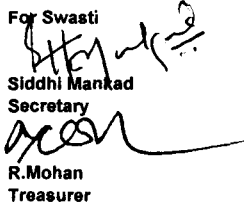 For Swasti
Siddhi Mankad
Secretary
R.Mohan
Treasurer